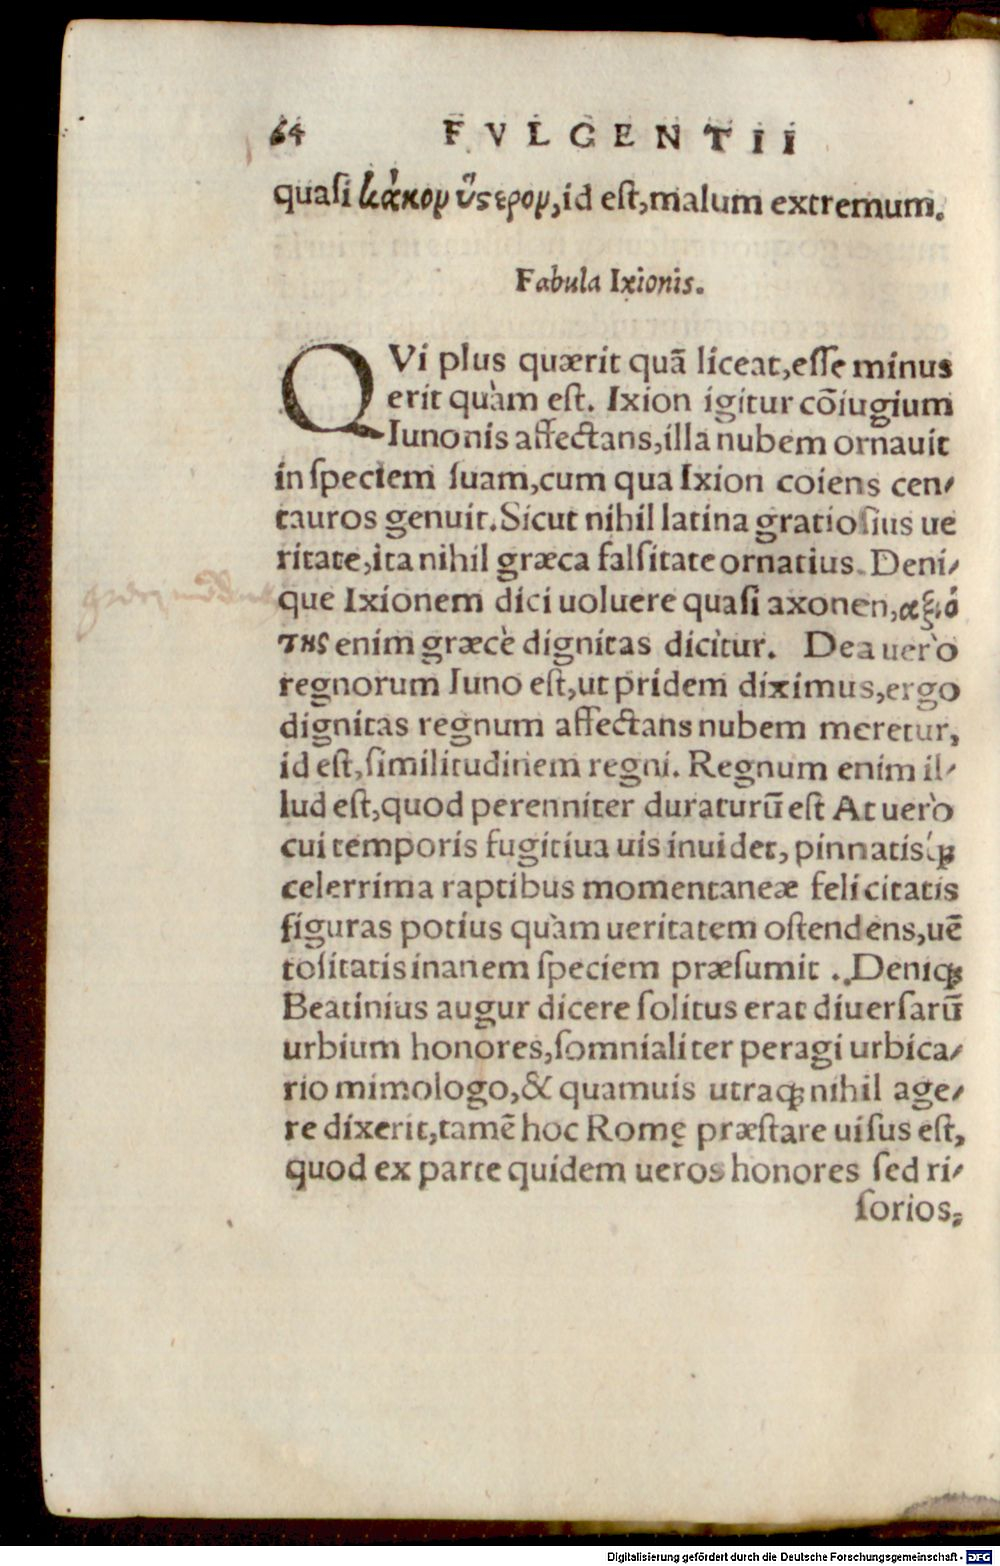 64 FVLGENTII
quasi κάκον ὕστερον, id est, malum extremum.
Fabula Ixionis.
QVi plus quærit quã liceat, esse minus
erit quàm est. Ixion igitur cõiugium
Iunonis affectans, illa nubem ornauit
in speciem suam, cum qua Ixion coiens cen-
tauros genuit. Sicut nihil latina gratiosius ue
ritate, ita nihil græca falsitate ornatius. Deni-
que Ixionem dici uoluere quasi axonen, αξιό
της enim græcè dignitas dicitur. Dea uerò
regnorum Iuno est, ut pridem diximus, ergo
dignitas regnum affectans nubem meretur,
id est, similitudinem regni. Regnum enim il-
lud est, quod perenniter duraturũ est At uerò
cui temporis fugitiua uis inuidet, pinnatisq́ꝫ
celerrima raptibus momentaneæ felicitatis
figuras potius quàm ueritatem ostendens, uẽ
tositatis inanem speciem præsumit. Deniqꝫ
Beatinius augur dicere solitus erat diuersarũ
urbium honores, somnialiter peragi urbica-
rio mimologo, & quamuis utraqꝫ nihil age-
re dixerit, tamẽ hoc Romę præstare uisus est,
quod ex parte quidem ueros honores sed ri-
sorios,
Digitalisierung gefördert durch die Deutsche Forschungsgemeinschaft - DFG